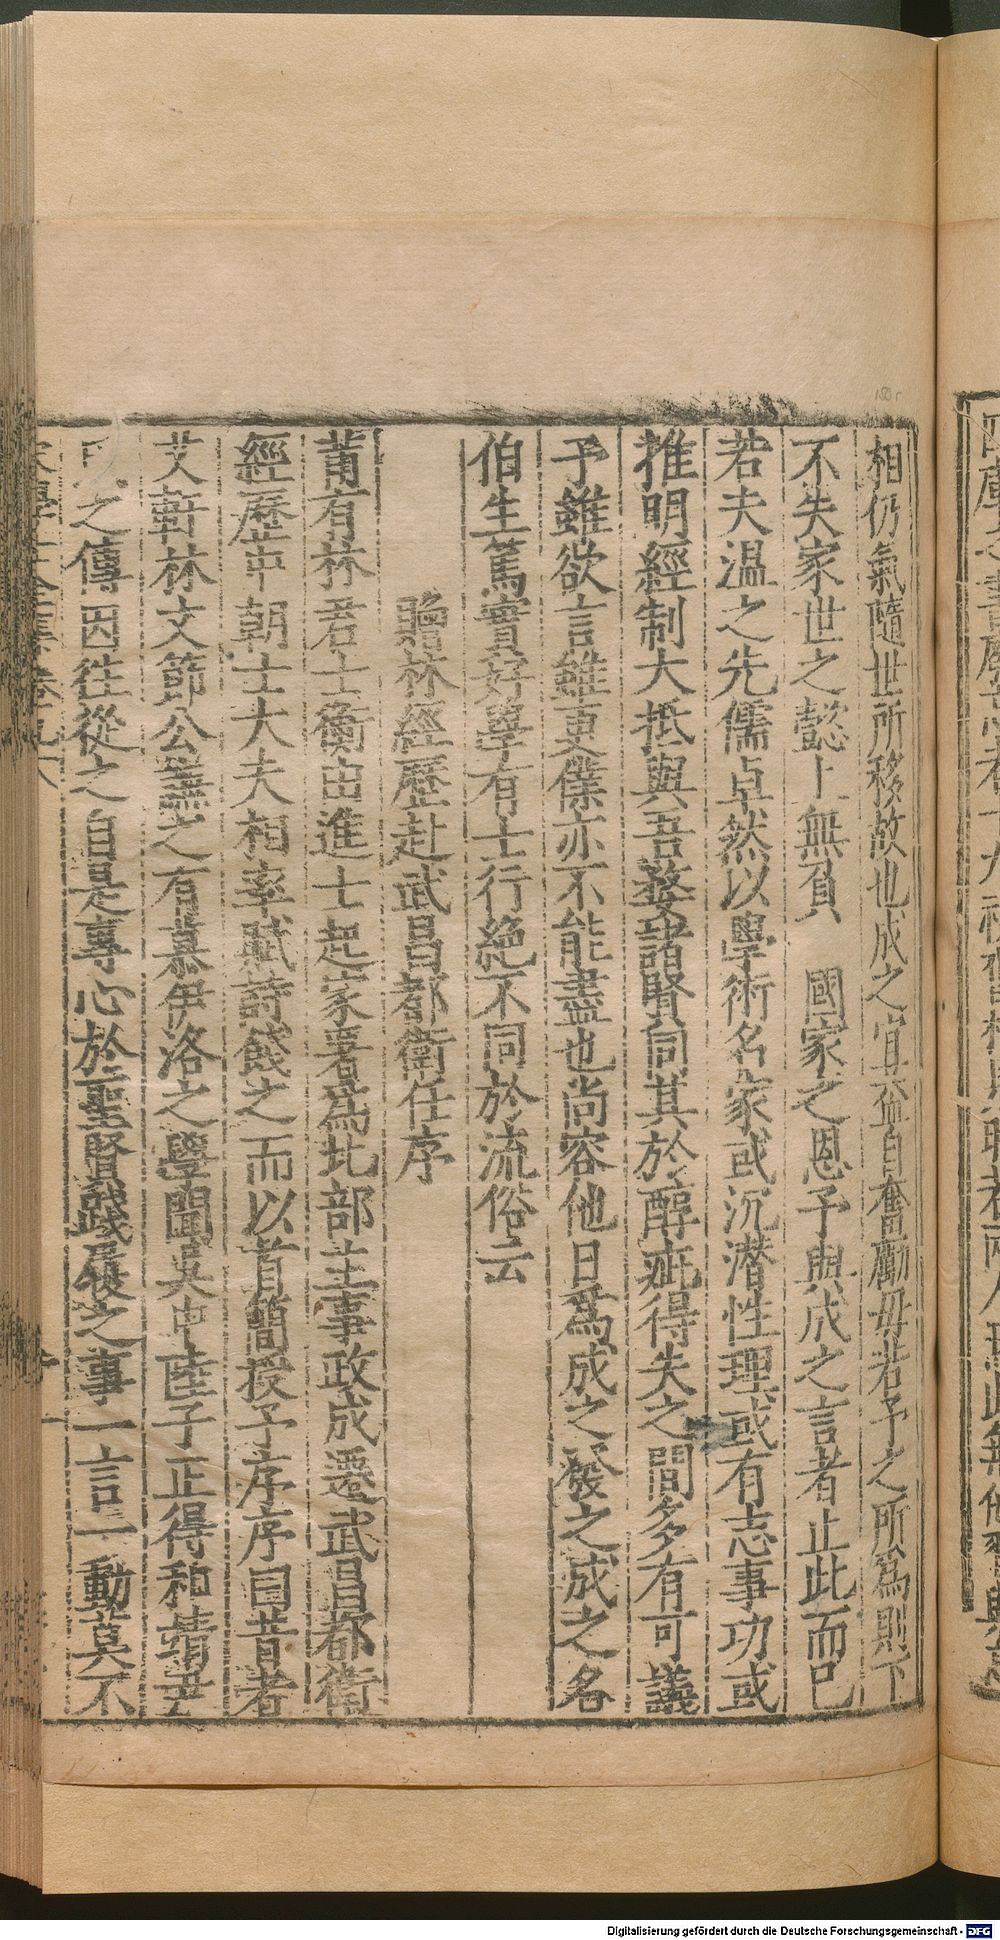 相仍氣隨世所移故也成之宜益自奮勵毋若予之所爲則下
不失家世之懿上無負　國家之恩予與成之言者止此而已
若夫温之先儒卓然以學術名家或沉潜性理或有志事功或
推明經制大抵與吾婺諸賢同其於醇疵得失之間多有可議
予雖欲言雖更僕亦不能盡也尚容他日爲成之發之成之名
伯生篤實好學有士行絶不同於流俗云
贈林經歷赴武昌都衛任序
莆有林君士衡由進士起家署爲比部主事政成遷武昌都衛
經歷中朝士大夫相率賦詩餞之而以首簡授予序序曰昔者
艾軒林文節公謙之有慕伊洛之學聞吳中陸子正得和靖尹
之傳因往從之自是專心於聖賢踐履之事一言一動莫不
Digitalisierung gefördert durch die Deutsche Forschungsgemeinschaft - DFG